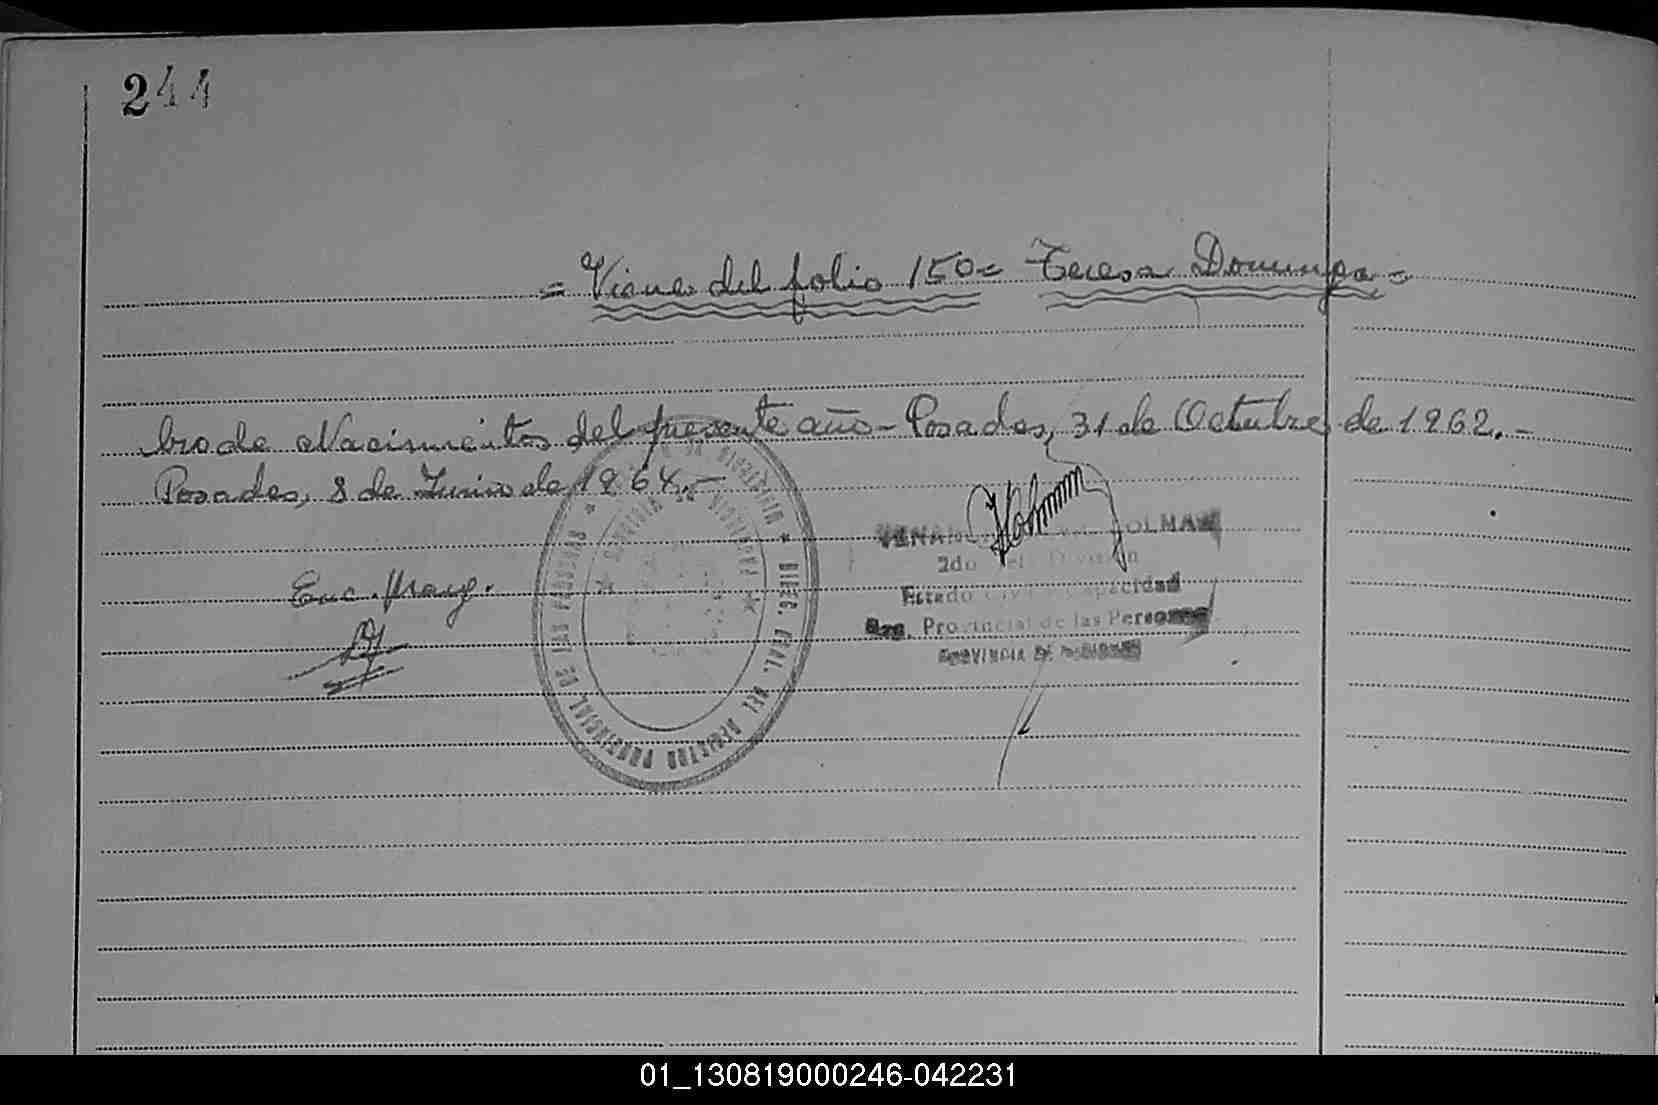 244
= Viene del folio 150 = Teresa Dominga =
bro de Nacimientos del presente año - Posadas, 31 de Octubre de 1962. -
Posadas, 8 de Junio de 1964. -
Enc. Marg.
2do Division
Estado Civil Capacidad
Reg. Provincial de las Personas
PROVINCIA DE MISIONES
DIREC. GRAL. DEL REGISTRO PROVINCIAL DE LAS PERSONAS
01_130819000246-042231